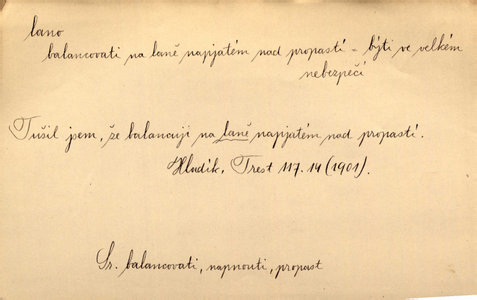 lano
balancovati na laně napjatém nad propastí - býti ve velkém
nebezpečí
Tušil jsem, že balancuji na laně napjatém nad propastí.
Hladík, Trest 117.14 (1901).
Sr. balancovati, napnouti, propast